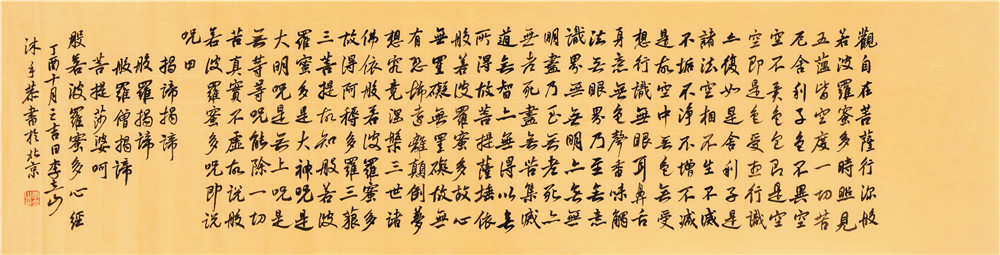 觀自在菩薩行深般
若波羅蜜多時照見
五蘊皆空度一切苦
厄舍利子色不異空
空不異色色即是空
空即是色受想行識
亦復如是舍利子是
諸法空相不生不滅
不垢不淨不增不減
是故空中無色無受
想行識無眼耳鼻舌
身意無色聲香味觸
法無眼界乃至無意
識界無無明亦無無
明盡乃至無老死亦
無老死盡無苦集滅
道無智亦無得以無
所得故菩提薩埵依
般若波羅蜜多故心
無罣礙無罣礙故無
有恐怖遠離顛倒夢
想究竟涅槃三世諸
佛依般若波羅蜜多
故得阿耨多羅三藐
三菩提故知般若波
羅蜜多是大神咒是
大明咒是無上咒是
無等等咒能除一切
苦真實不虛故說般
若波羅蜜多咒即說
咒曰
揭諦揭諦
般羅揭諦
般羅僧揭諦
菩提莎婆呵
般若波羅蜜多心經
丁酉十月之吉日李
沐手恭書於北京